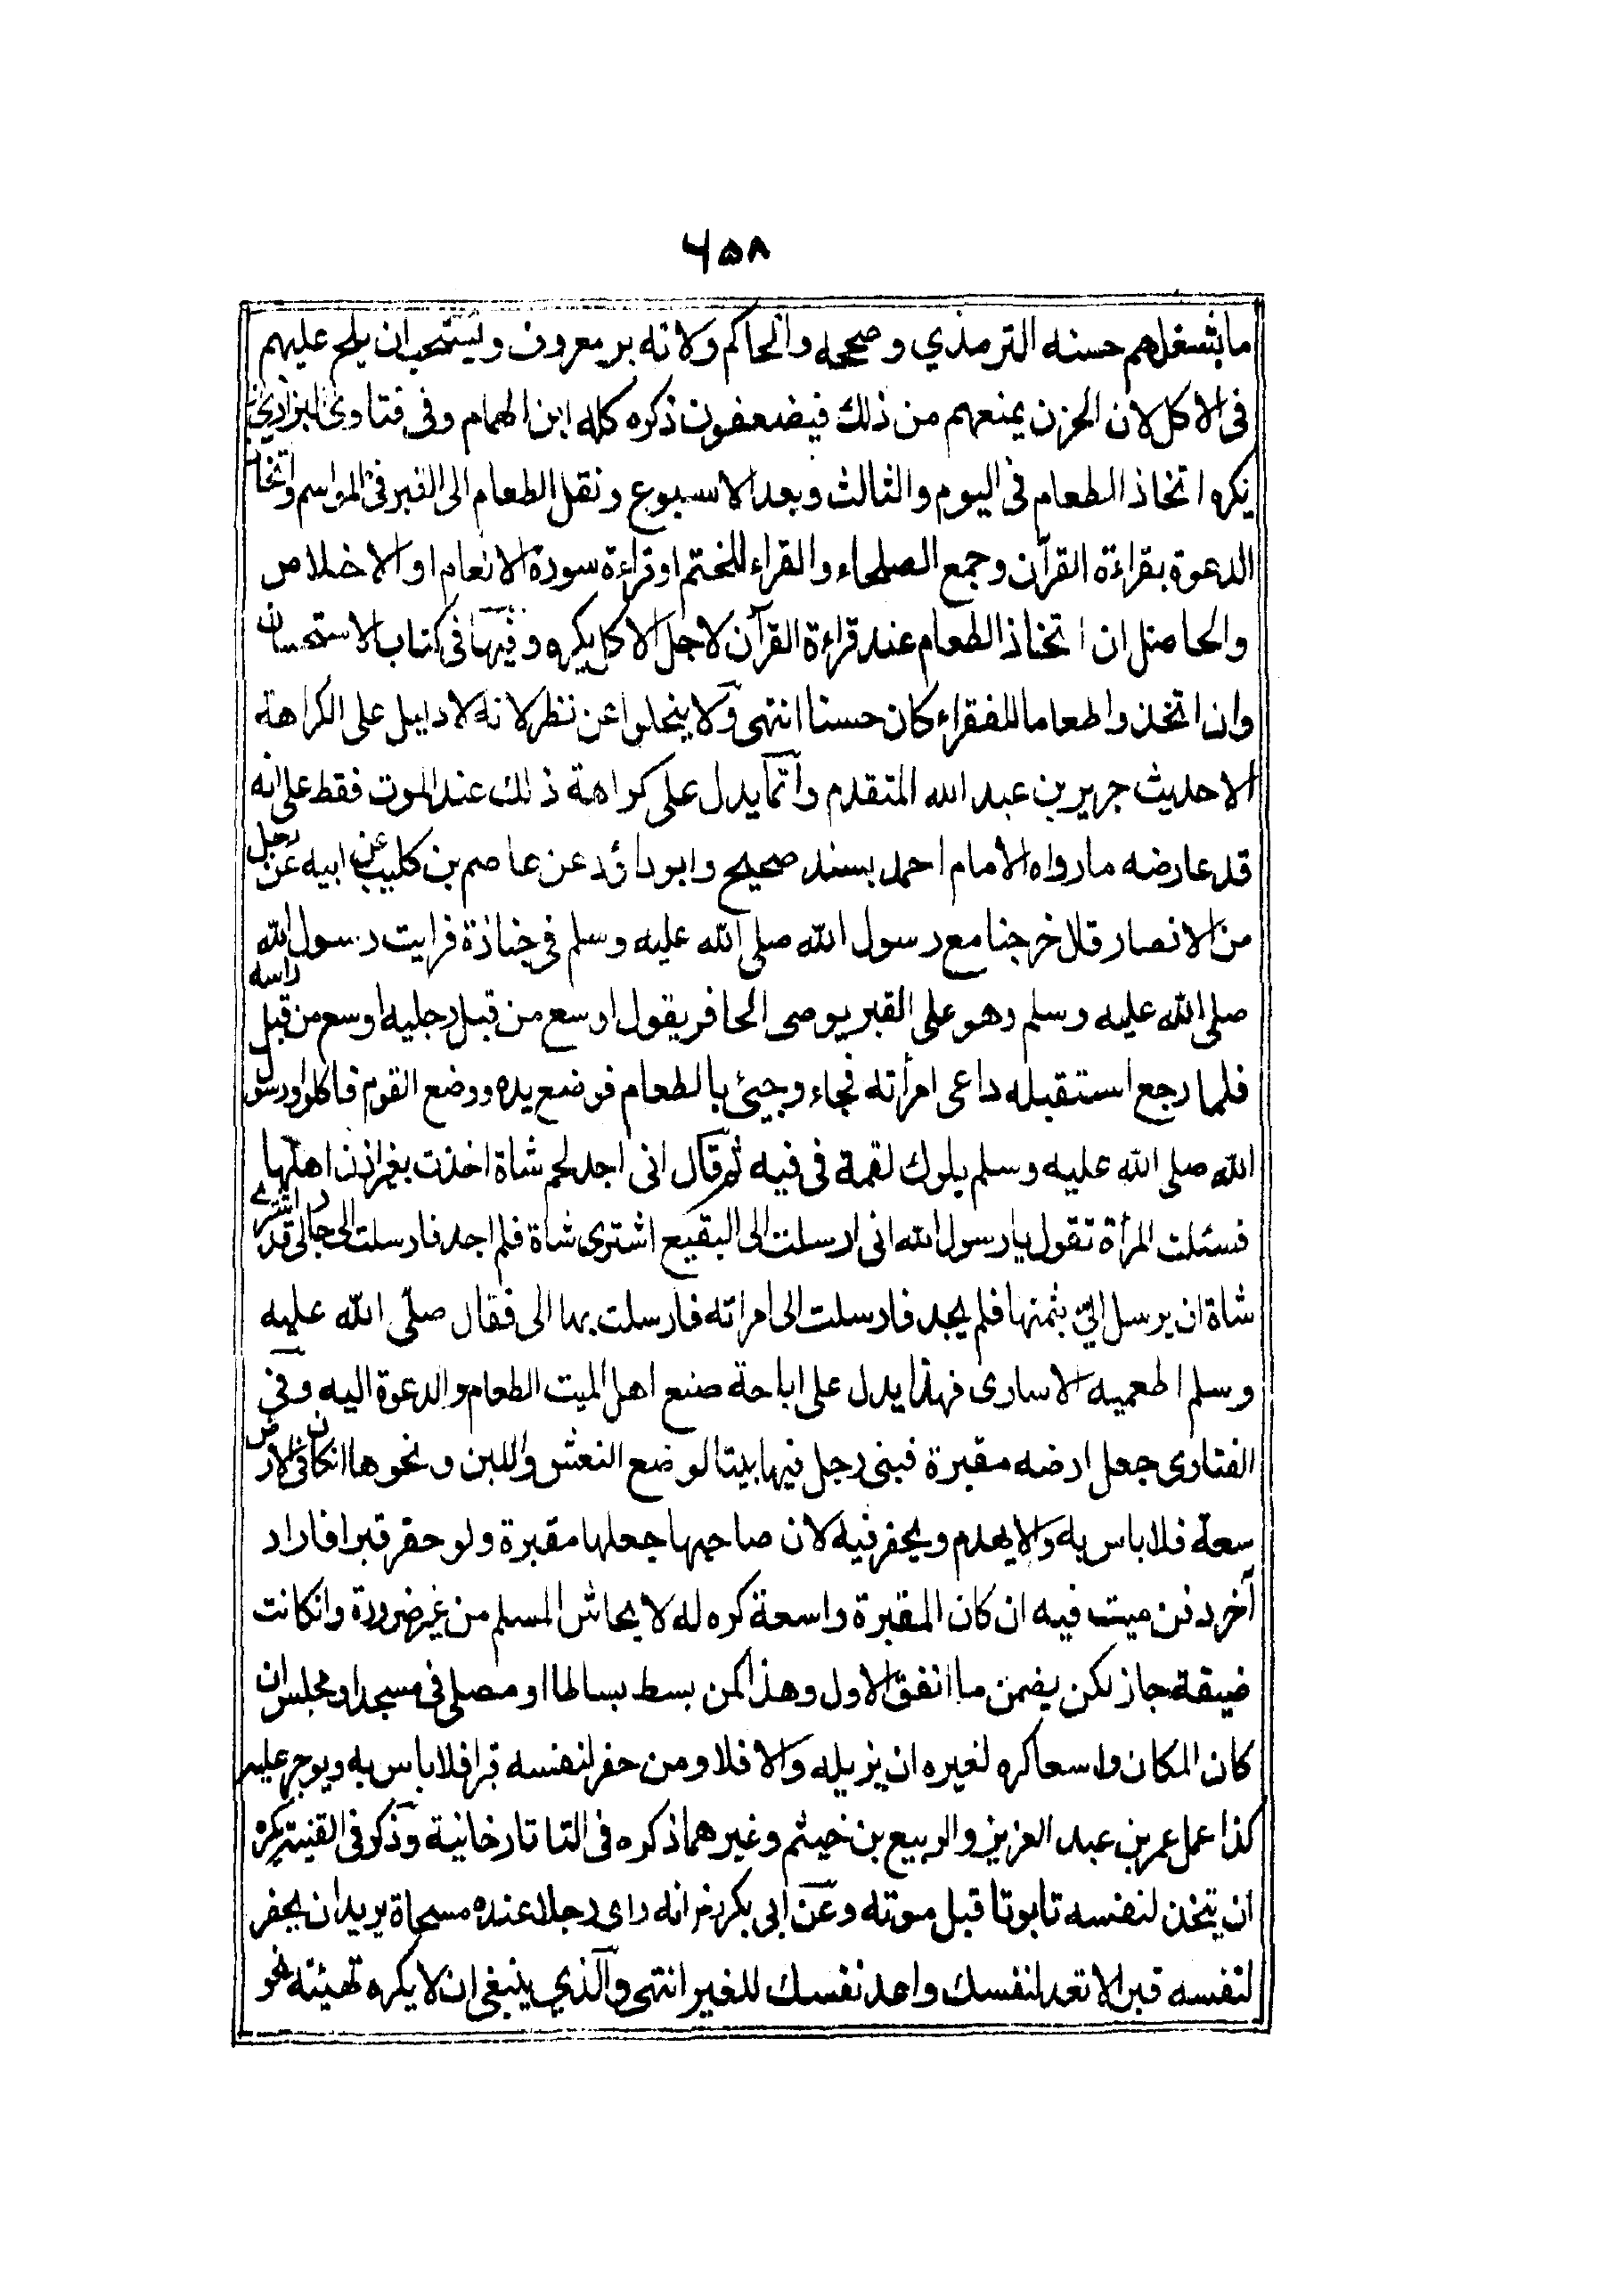 ٦٥٨
ما يشغلهم حسنه الترمذي وصححه والحاكم ولانه بر معروف ويستحب ان يلح عليهم
فى الاكل لان الحزن يمنعهم من ذلك فيضعفون ذكره كله ابن الهمام وفى فتاوى البزازي
يكره اتخاذ الطعام فى اليوم والثالث وبعد الاسبوع ونقل الطعام الى القبر فى المواسم واتخاذ
الدعوة بقراءة القرآن وجمع الصلحاء والقراء للختم او قراءة سورة الانعام او الاخلاص
والحاصل ان اتخاذ الطعام عند قراءة القرآن لاجل الاكل يكره وفيها فى كتاب الاستحسان
وان اتخذوا طعاما للفقراء كان حسنا انتهى ولا يخلوا عن نظر لانه لا دليل على الكراهة
الا حديث جرير بن عبد الله المتقدم وانما يدل على كراهة ذلك عند الموت فقط على انه
قد عارضه ما رواه الامام احمد بسند صحيح وابو داؤد عن عاصم بن كليب عن ابيه عن رجل
من الانصار قال خرجنا مع رسول الله صلى الله عليه وسلم فى جنازة فرايت رسول الله
صلى الله عليه وسلم وهو على القبر يوصى الحافر يقول اوسع من قبل رجليه اوسع من قبل راسه
فلما رجع استقبله داعى امرأته فجاء وجيئ بالطعام فوضع يده ووضع القوم فاكلوا ورسول
الله صلى الله عليه وسلم يلوك لقمة فى فيه ثم قال انى اجد لحم شاة اخذت بغير اذن اهلها
فسئلت المرأة تقول يا رسول الله انى ارسلت الى البقيع اشترى شاة فلم اجد فارسلت الى جار لى قد اشترے
شاة ان يرسل الىّ بثمنها فلم يجد فارسلت الى امراته فارسلت بها الى فقال صلّى الله عليه
وسلم اطعميه الاسارى فهذا يدل على اباحة صنع اهل الميت الطعام والدعوة اليه وفى
الفتاوى جعل ارضه مقبرة فبنى رجل فيها بيتا لوضع النعش واللبن ونحوها ان كان فى الارض
سعة فلا باس به والا يهدم ويحفر فيه لان صاحبها جعلها مقبرة ولو حفر قبرا فاراد
آخر دفن ميت فيه ان كان المقبرة واسعة كره له لا يحاش المسلم من غير ضرورة وانكانت
ضيقة جاز لكن يضمن ما انفق الاول وهذا كمن بسط بساطا او مصلى فى مسجد او مجلس ان
كان المكان واسعا كره لغيره ان يزيله والا فلا ومن حفر لنفسه قبرا فلا باس به ويوجر عليه
كذا عمل عمر بن عبد العزيز والربيع بن خيثم وغيرهما ذكره فى التاتارخانية وذكر فى القنية يكره
ان يتخذ لنفسه تابوتا قبل موته وعن ابى بكر رض انه راى رجلا عنده مسحاة يريد ان يحفر
لنفسه قبرا لا تعد لنفسك واعد نفسك للغير انتهى والذي ينبغى ان لا يكره تهيئة نحو